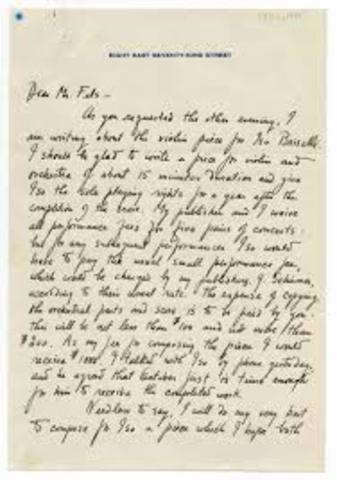 EIGHT EAST SEVENTY-NINE STREET
Dear Mr. Fels –
As you requested the other evening, I
am writing about the violin piece for Iso Briselli.
I should be glad to write a piece for violin and
orchestra of about 15 minutes duration and give
Iso the sole playing rights for a year after the
completion of the score. My publisher and I waive
all performance fees for five pairs of concerts.
but for any subsequent performances Iso would
have to pay the usual small performance fee,
which would be charged by my publishers, G. Schirmer,
according to their usual rate. The expense of copying
the orchestral parts and score is to be paid by you.
this will be not less than $100 and not more than
$200. As my fee for composing the piece I would
receive $1000. I talked with Iso by phone yesterday,
and he agreed that October first is time enough
for him to receive the completed work.
Needless to say, I will do my very best
to compose for Iso a piece which I hope both